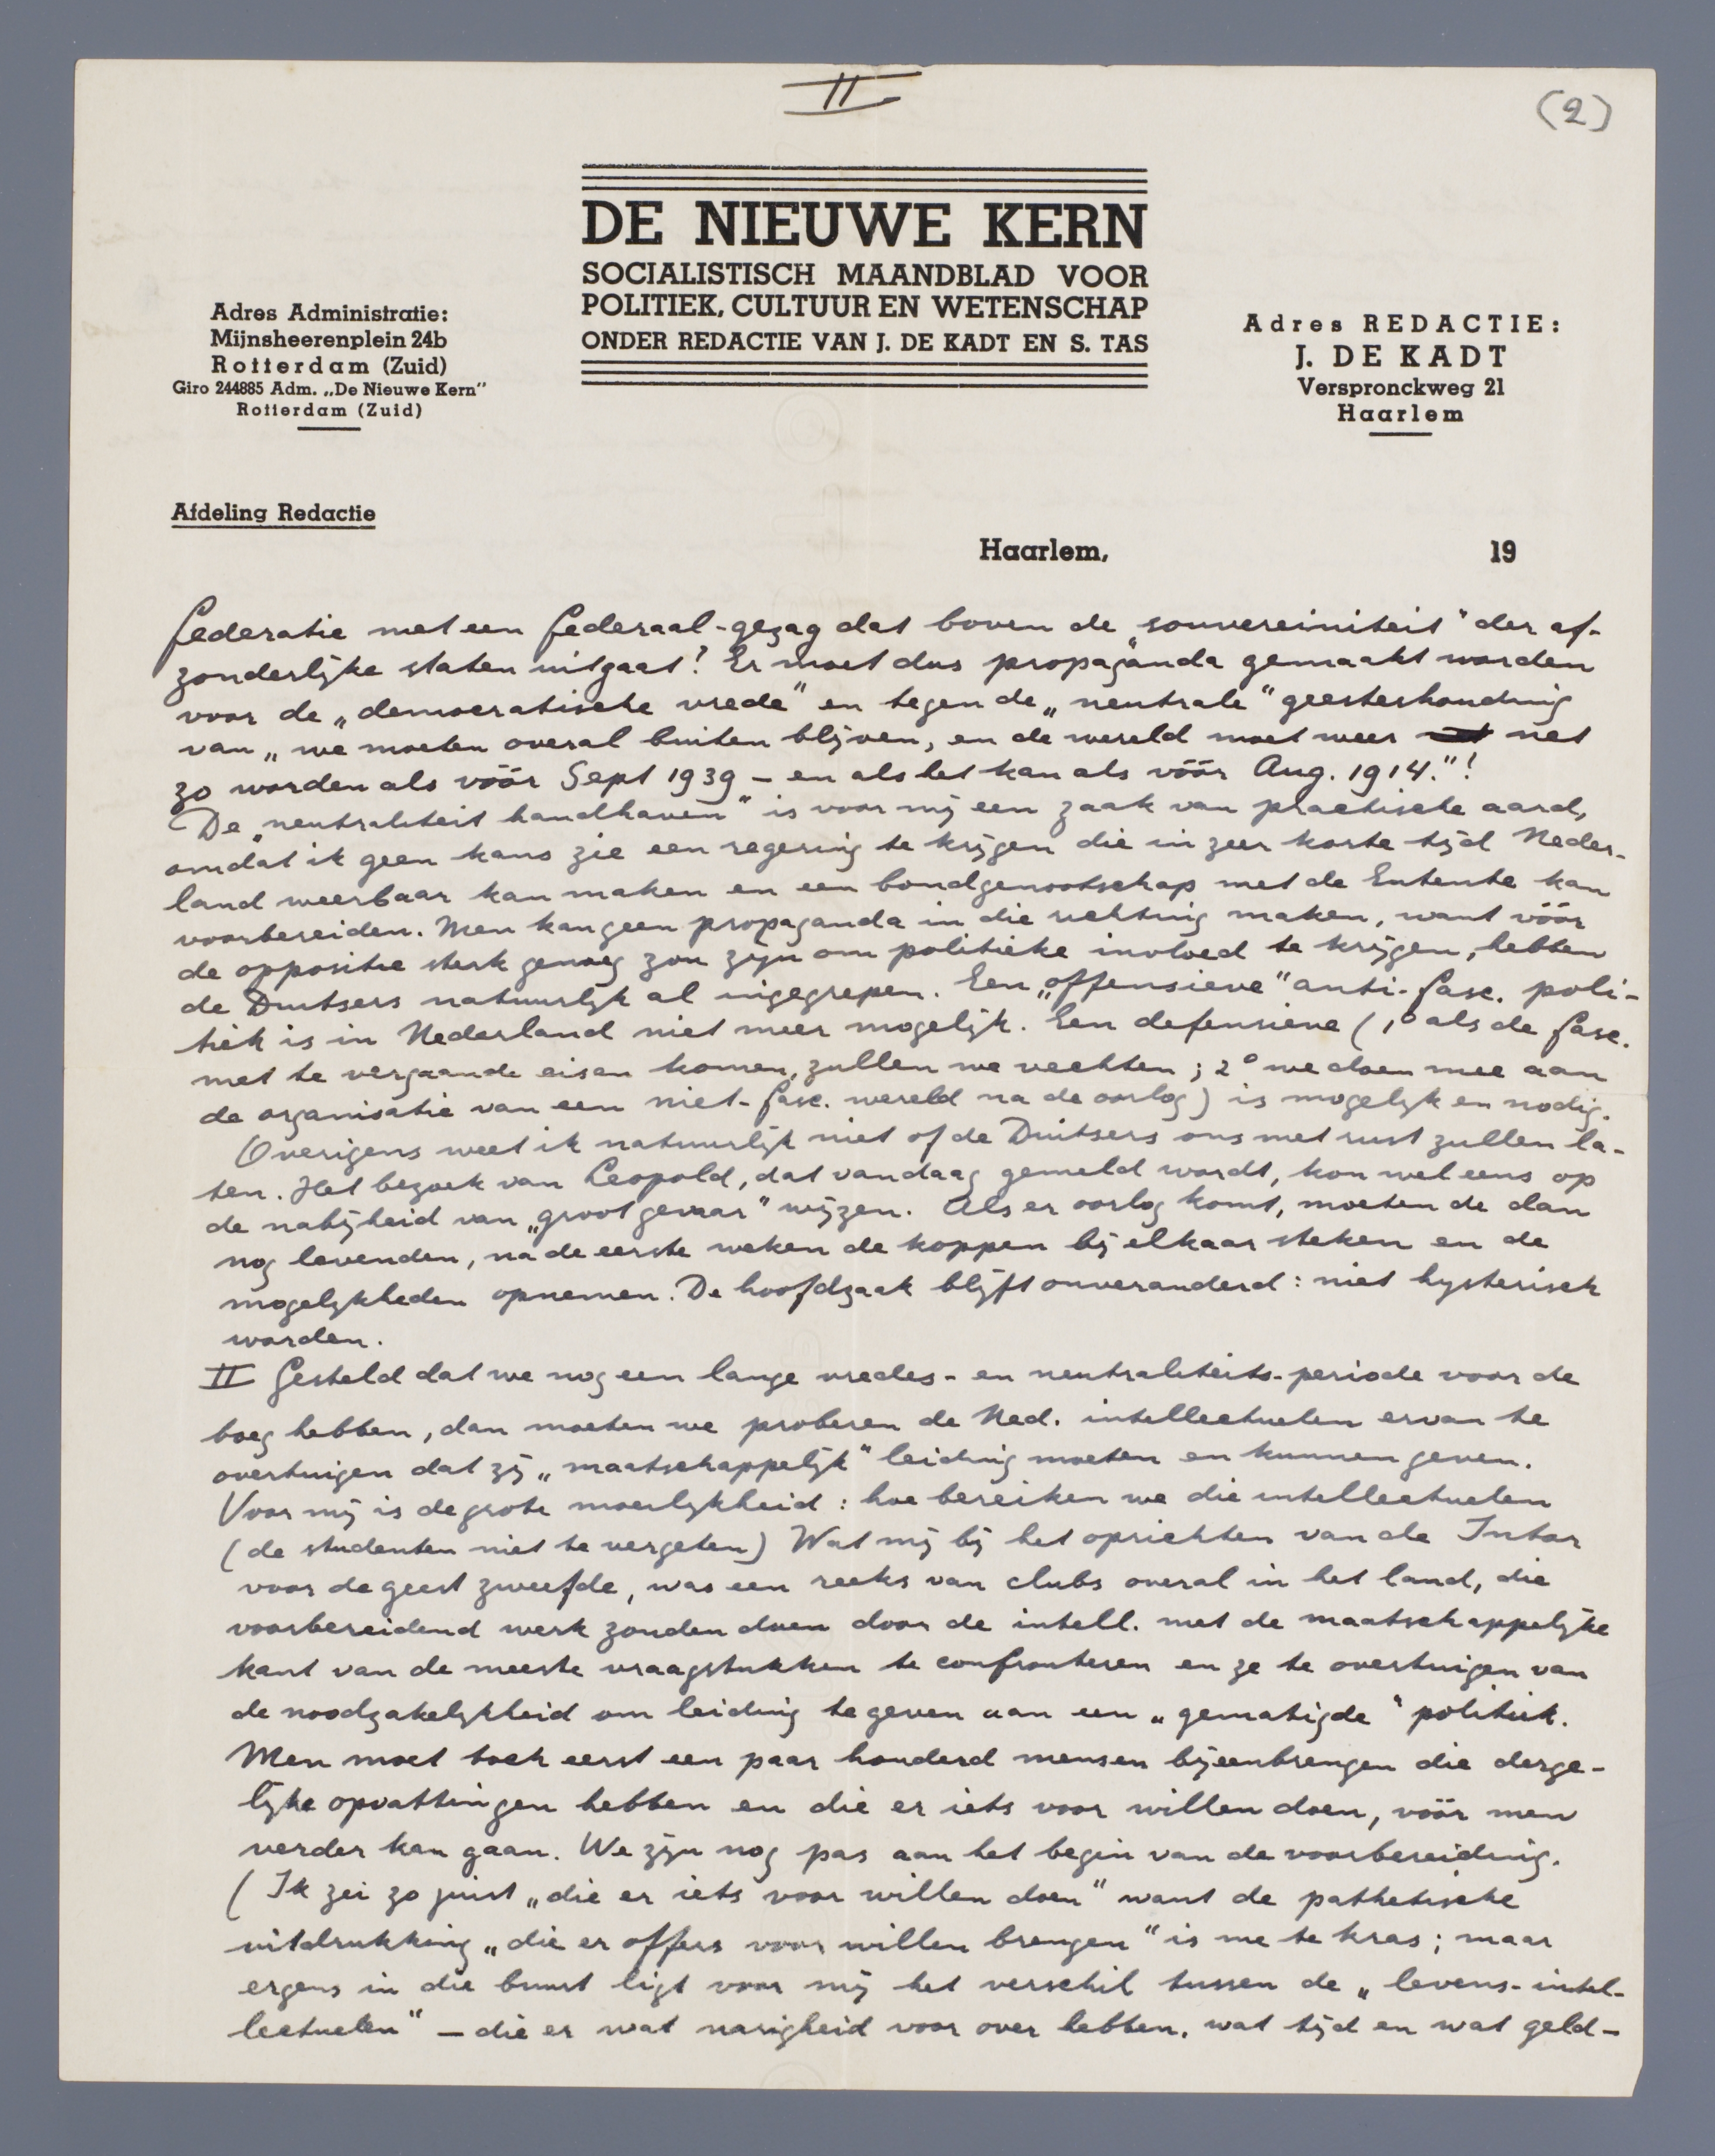 II
(2)
DE NIEUWE KERN
SOCIALISTISCH MAANDBLAD VOOR
POLITIEK, CULTUUR EN WETENSCHAP
ONDER REDACTIE VAN J. DE KADT EN S. TAS
Adres Administratie:
Mijnsheerenplein 24b
Rotterdam (Zuid)
Giro 244885 Adm. „De Nieuwe Kern"
Rotterdam (Zuid)
Adres REDACTIE:
J. DE KADT
Verspronckweg 21
Haarlem
Afdeling Redactie
Haarlem, 19
federatie met een federaal-gezag dat boven de „souvereiniteit" der af-
zonderlijke staten uitgaat! Er moet dus propaganda gemaakt worden
voor de „democratische vrede" en tegen de „neutrale" geesteshouding
van „we moeten overal buiten blijven, en de wereld moet weer net
zo worden als vóór Sept 1939 – en als het kan als vóór Aug. 1914."!
De „neutraliteit handhaven" is voor mij een zaak van practische aard,
omdat ik geen kans zie een regering te krijgen die in zeer korte tijd Neder-
land weerbaar kan maken en een bondgenootschap met de Entente kan
voorbereiden. Men kan geen propaganda in die richting maken, want vóór
de oppositie sterk genoeg zou zijn om politieke invloed te krijgen, hebben
de Duitsers natuurlijk al ingegrepen. Een „offensieve" anti-fasc. poli-
tiek is in Nederland niet meer mogelijk. Een defensieve (1° als de fasc.
met te vergaande eisen komen, zullen we vechten; 2° we doen mee aan
de organisatie van een niet-fasc. wereld na de oorlog) is mogelijk en nodig.
Overigens weet ik natuurlijk niet of de Duitsers ons met rust zullen la-
ten. Het bezoek van Leopold, dat vandaag gemeld wordt, kon wel eens op
de nabijheid van „groot gevaar" wijzen. Als er oorlog komt, moeten de dan
nog levenden, na de eerste weken de koppen bij elkaar steken en de
mogelijkheden opnemen. De hoofdzaak blijft onveranderd: niet hysterisch
worden.
II Gesteld dat we nog een lange vredes- en neutraliteits-periode voor de
boeg hebben, dan moeten we proberen de Ned. intellectuelen ervan te
overtuigen dat zij „maatschappelijk" leiding moeten en kunnen geven.
Voor mij is de grote moeilijkheid: hoe bereiken we die intellectuelen
(de studenten niet te vergeten) Wat mij bij het oprichten van de Intar
voor de geest zweefde, was een reeks van clubs overal in het land, die
voorbereidend werk zouden doen door de intell. met de maatschappelijke
kant van de meeste vraagstukken te confronteren en ze te overtuigen van
de noodzakelijkheid om leiding te geven aan een „gematigde" politiek.
Men moet toch eerst een paar honderd mensen bijeenbrengen die derge-
lijke opvattingen hebben en die er iets voor willen doen, vóór men
verder kan gaan. We zijn nog pas aan het begin van de voorbereiding.
(Ik zei zo juist „die er iets voor willen doen" want de pathetische
uitdrukking „die er offers voor willen brengen" is me te kras; maar
ergens in die buurt ligt voor mij het verschil tussen de „levens-intel-
lectuelen" – die er wat narigheid voor over hebben, wat tijd en wat geld –